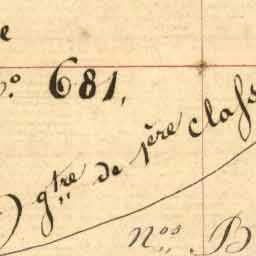 e
o. 681,
gtre de 1ère class
Nos. B